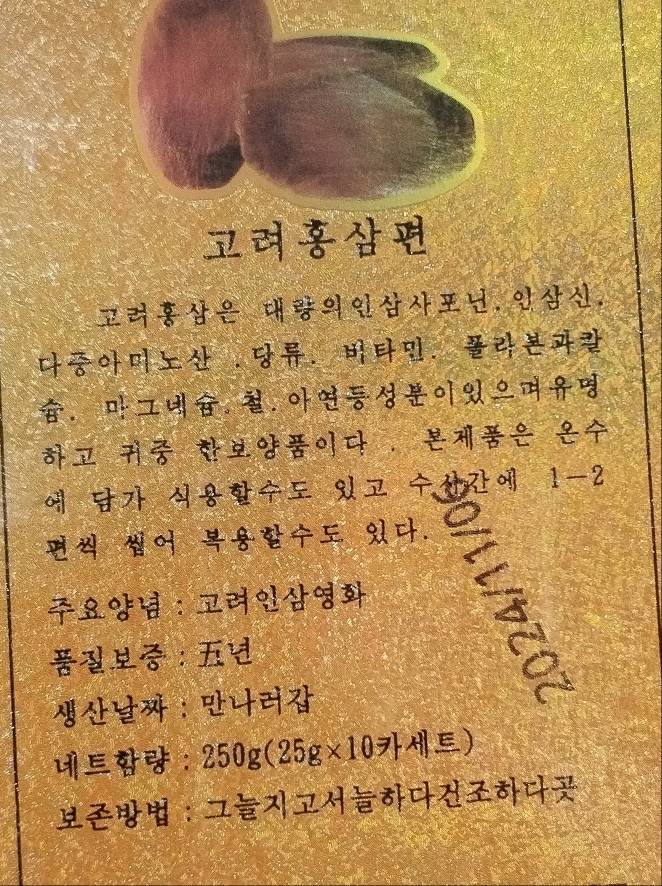 고려홍삼편
고려홍삼은 대량의인삼사포닌. 인삼신.
다중아미노산 . 당류. 비타민. 폴라본과칼
슘. 마그네슘. 철. 아연등성분이있으며유명
하고 귀중 한보양품이다 . 본제품은 온수
에 담가 식용할수도 있고 수시간에 1-2
편씩 씹어 복용할수도 있다.
주요양념 : 고려인삼영화
품질보증 : 五년
생산날짜 : 만나러갑
네트함량 : 250g(25g×10카세트)
보존방법 : 그늘지고서늘하다건조하다곳
2024/11/06